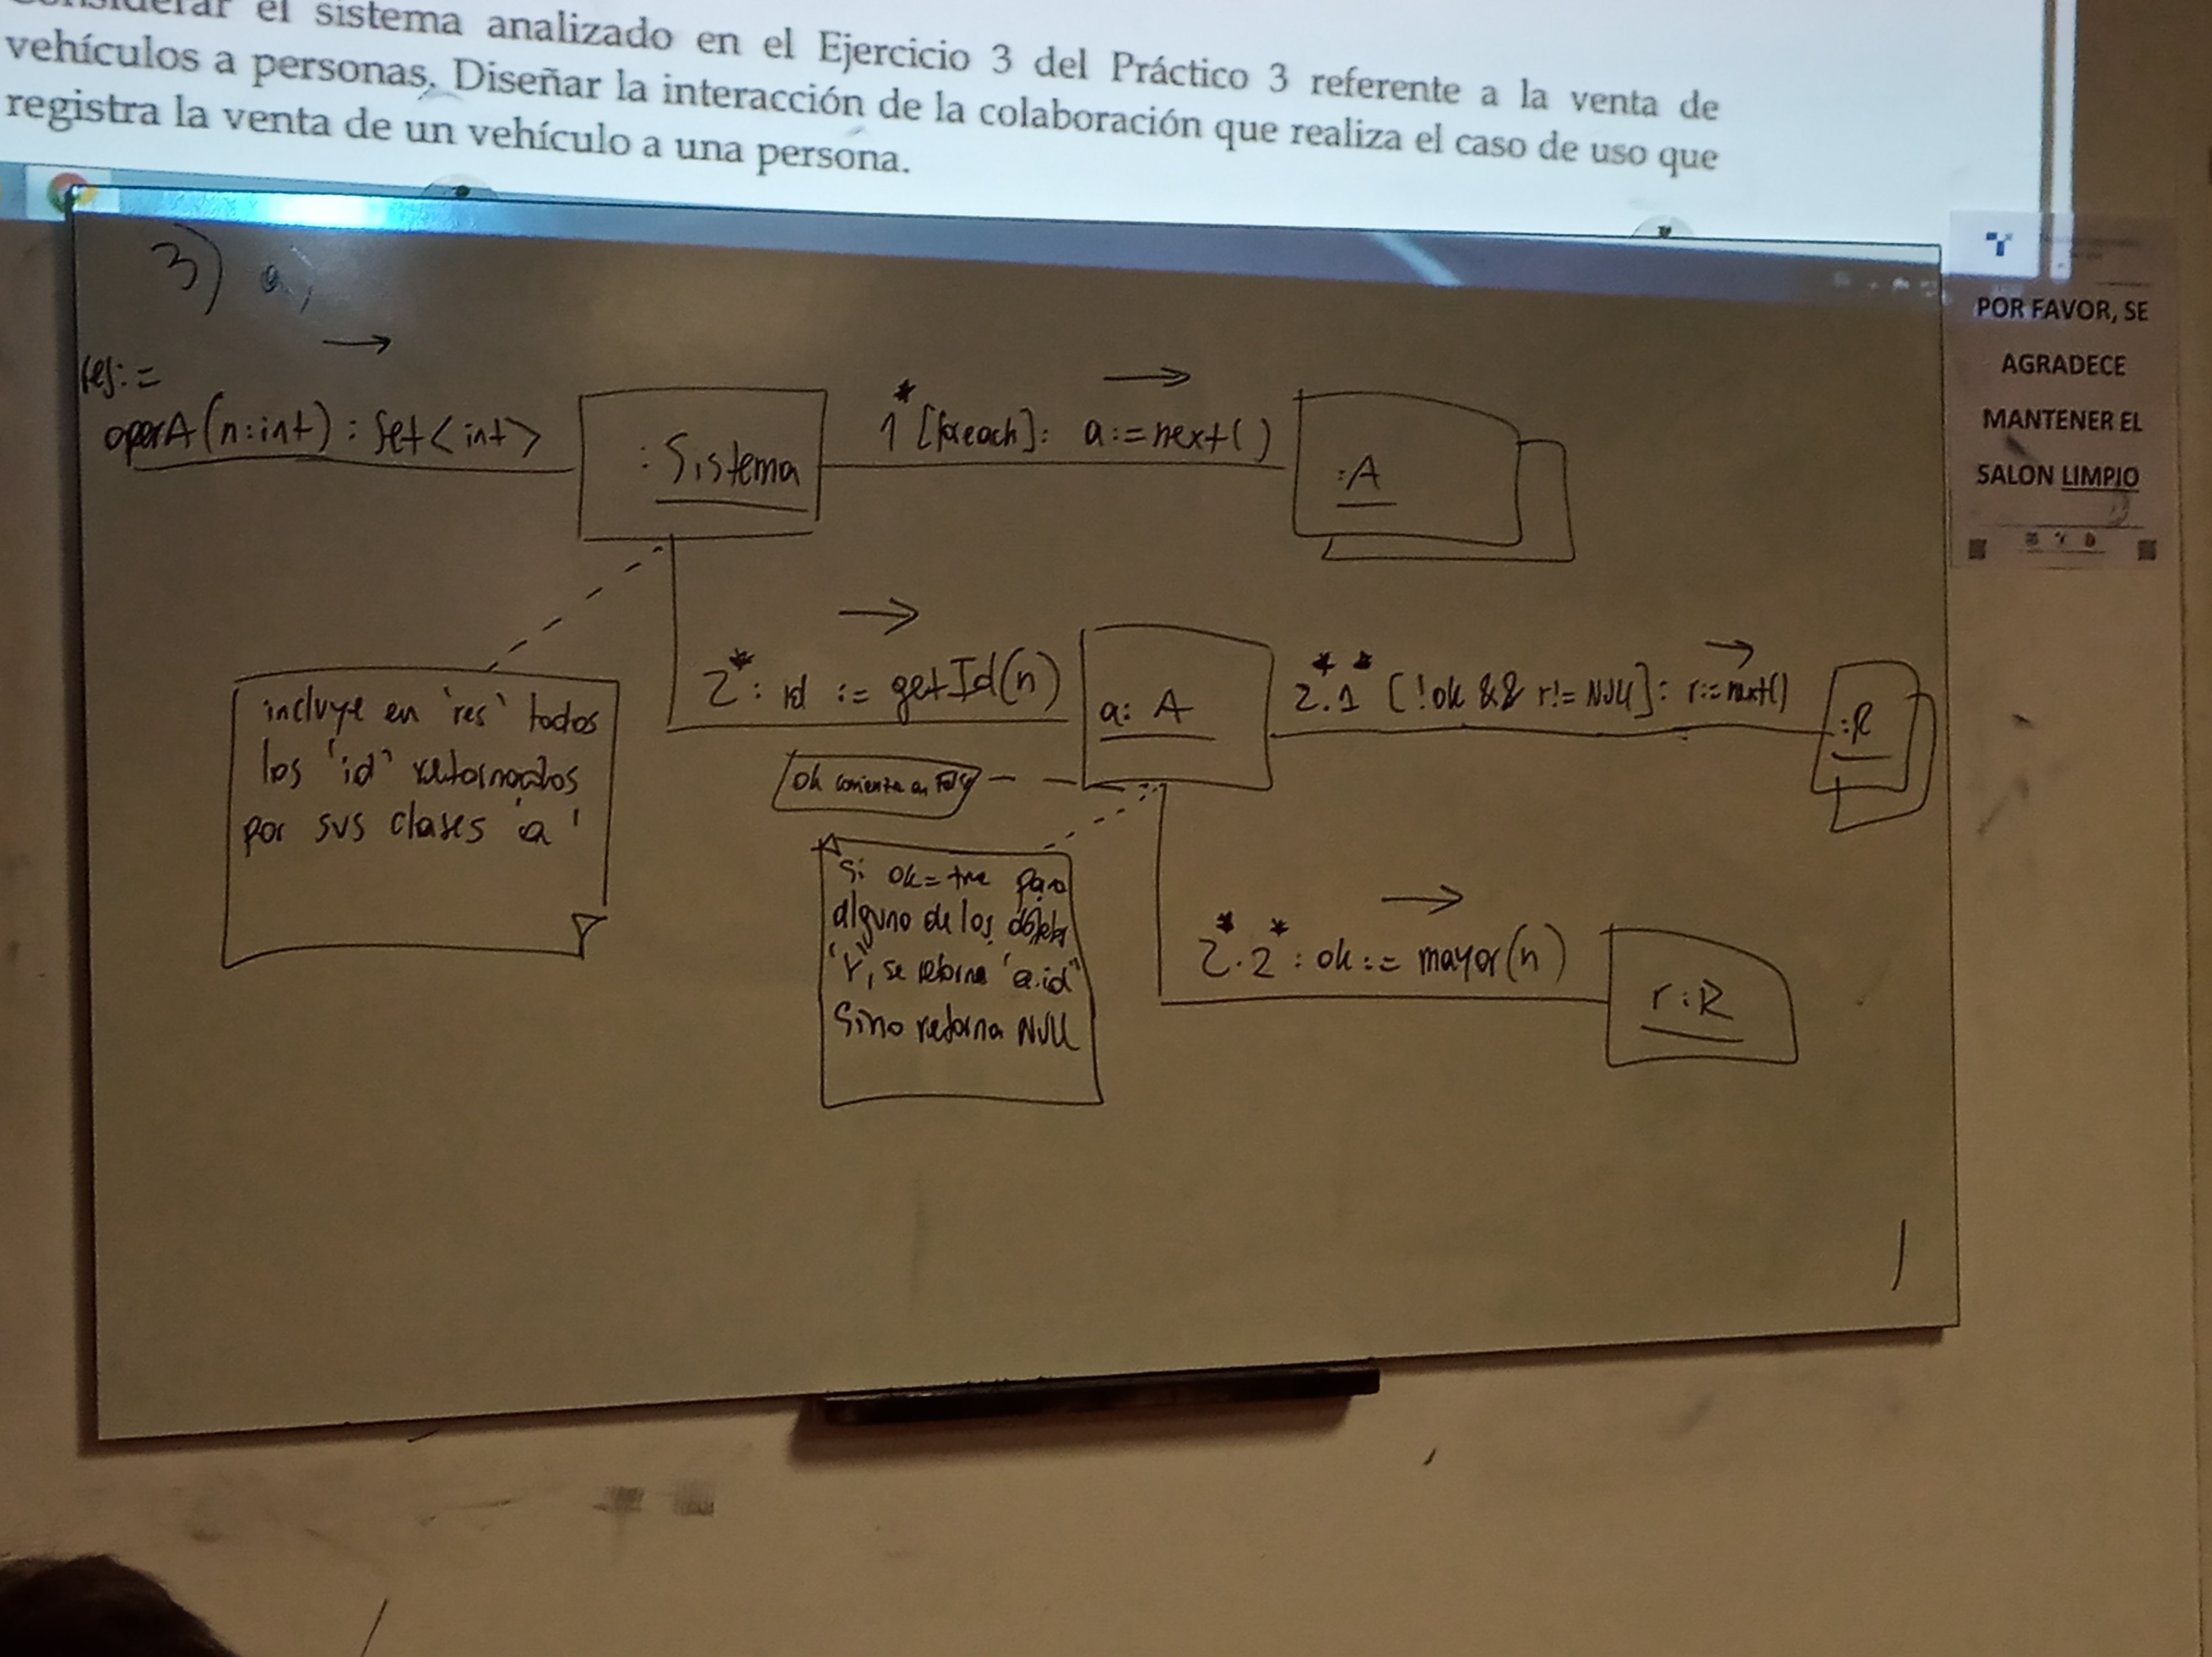 Considerar el sistema analizado en el Ejercicio 3 del Práctico 3 referente a la venta de
vehículos a personas. Diseñar la interacción de la colaboración que realiza el caso de uso que
registra la venta de un vehículo a una persona.
3) a)
res:=
operA(n:int) : Set<int>
:Sistema
1* [foreach]: a:=next()
:A
2*: id := getId(n)
a: A
2*.1* [!ok && r!= NULL]: r:=next()
:R
incluye en 'res' todos
los 'id' retornados
por sus clases 'a'
ok comienza en
Si ok = true para
alguno de los
"r", se retorna 'a.id'
Sino retorna NULL
2*.2* : ok := mayor(n)
r:R
POR FAVOR, SE
AGRADECE
MANTENER EL
SALON LIMPIO